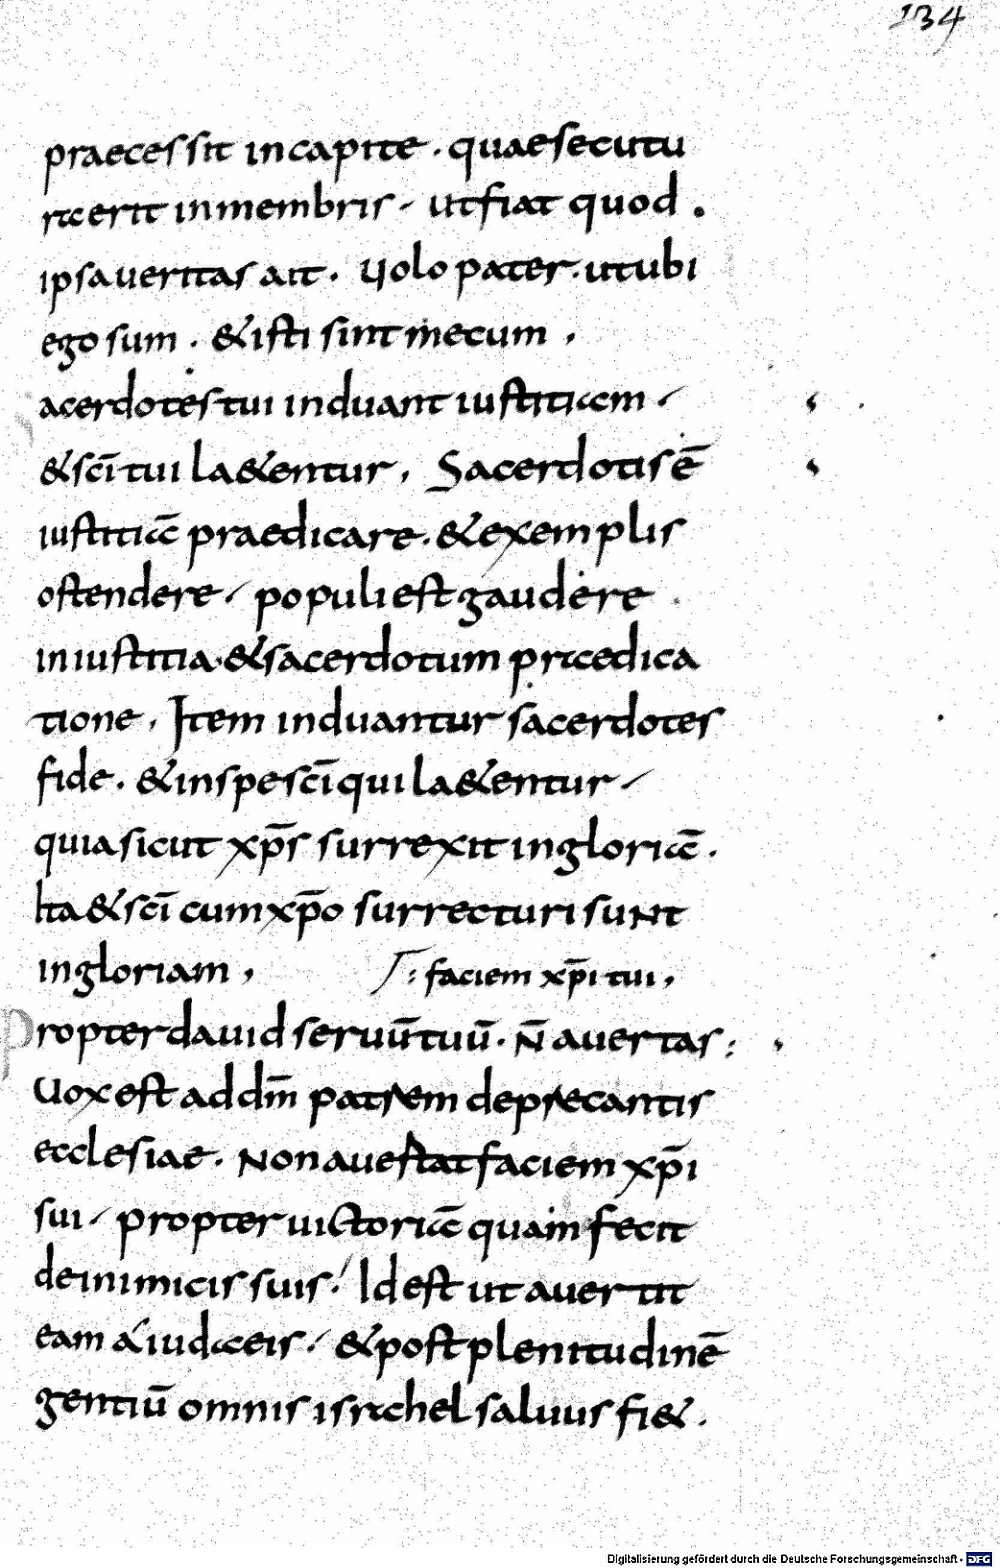 134
praecessit incapite. quaesecutu
ra erit inmembris. utfiat quod.
ipsaueritas ait. Uolo pater. utubi
ego sum. &isti sint mecum,
acerdotes tui induant iustitiam.
&scī tui la&entur, Sacerdotis ē
iustitiā praedicare. &exemplis
ostendere. populi est gaudere
iniustitia. &sacerdotum praedica
tione, Item induantur sacerdotes
fide. &inspe scī qui la&entur.
quia sicut xp̄s surrexit ingloriā.
Ita &scī cum xp̄o surrecturi suNt
ingloriam, faciem xp̄i tui,
Propter dauid seruū tuū. N̄ auertas:
Uox est ad dm̄ patrem deprecantis
ecclesiae. Non auestat faciem xp̄i
sui. propter uictoriā quam fecit
deinimicis suis. Id est ut auertit
eam a iudaeis. &post plenitudinē
gentiū omnis israhel saluus fi&.
Digitalisierung gefördert durch die Deutsche Forschungsgemeinschaft - DFG